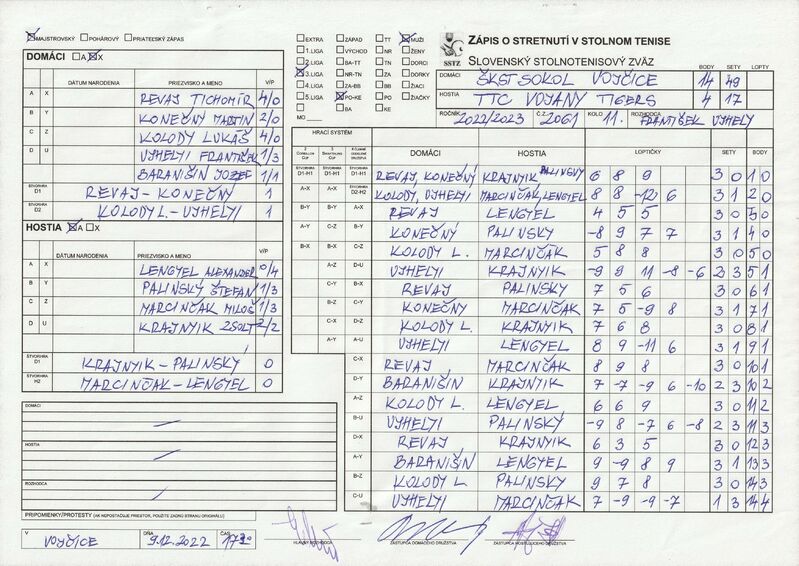 MAJSTROVSKÝ POHÁROVÝ PRIATEĽSKÝ ZÁPAS
DOMÁCI A X
DÁTUM NARODENIA PRIEZVISKO A MENO V/P
A X REVAJ TICHOMÍR 4/0
B Y KONEČNÝ MARTIN 2/0
C Z KOLODY LUKÁŠ 4/0
D U UJHELYI FRANTIŠEK 1/3
BARANIŠIN JOZEF 1/1
ŠTVORHRA D1 REVAJ - KONEČNÝ 1
ŠTVORHRA D2 KOLODY L. - UJHELYI 1
HOSTIA A X
DÁTUM NARODENIA PRIEZVISKO A MENO V/P
A X LENGYEL ALEXANDER 0/4
B Y PALINSKÝ ŠTEFAN 1/3
C Z MARCINČÁK MILOŠ 1/3
D U KRAJNYIK ZSOLT 2/2
ŠTVORHRA D1 KRAJNYIK - PALINSKY 0
ŠTVORHRA H2 MARCINČAK - LENGYEL 0
DOMÁCI
HOSTIA
ROZHODCA
PRIPOMIENKY/PROTESTY (AK NEPOSTAČUJE PRIESTOR, POUŽITE ZADNÚ STRANU ORIGINÁLU)
V VOJČICE DŇA 9.12.2022 ČAS 17:30
EXTRA ZÁPAD TT MUŽI
1.LIGA VÝCHOD NR ŽENY
2.LIGA BA-TT TN DORCI
3.LIGA NR-TN ZA DORKY
4.LIGA ZA-BB BB ŽIACI
5.LIGA PO-KE PO ŽIAČKY
BA KE
MO
SSTZ
ZÁPIS O STRETNUTÍ V STOLNOM TENISE
SLOVENSKÝ STOLNOTENISOVÝ ZVÄZ
BODY SETY LOPTY
DOMÁCI ŠKST SOKOL VOJČICE 14 49
HOSTIA TTC VOJANY TIGERS 4 17
ROČNÍK 2022/2023 Č.Z. 2061 KOLO 11. ROZHODCA FRANTIŠEK UJHELY
HRACÍ SYSTÉM
DOMÁCI HOSTIA LOPTIČKY SETY BODY
ŠTVORHRA D1-H1 ŠTVORHRA D1-H1 ŠTVORHRA D1-H1 REVAJ, KONEČNÝ KRAJNYIK PALINSKY 6 8 9 3 0 1 0
A-X A-X ŠTVORHRA D2-H2 KOLODY, UJHELYI MARCINČAK, LENGYEL 8 8 -12 6 3 1 2 0
B-Y B-Y A-X REVAJ LENGYEL 4 5 5 3 0 3 0
A-Y C-Z B-Y KONEČNÝ PALINSKY -8 9 7 7 3 1 4 0
B-X B-X C-Z KOLODY L. MARCINČÁK 5 8 8 3 0 5 0
A-Z D-U UJHELYI KRAJNYIK -9 9 11 -8 -6 2 3 5 1
C-Y B-X REVAJ PALINSKÝ 7 5 6 3 0 6 1
B-Z C-Y KONEČNÝ MARCINČAK 7 5 -9 8 3 1 7 1
C-X D-Z KOLODY L. KRAJNYIK 7 6 8 3 0 8 1
A-Y A-U UJHELYI LENGYEL 8 9 -11 6 3 1 9 1
C-X REVAJ MARCINČÁK 8 9 8 3 0 10 1
D-Y BARANIŠIN KRAJNYIK 7 -7 -9 6 -10 2 3 10 2
A-Z KOLODY L. LENGYEL 6 6 9 3 0 11 2
B-U UJHELYI PALINSKÝ -9 8 -7 6 -8 2 3 11 3
D-X REVAJ KRAJNYIK 6 3 5 3 0 12 3
A-Y BARANIŠIN LENGYEL 9 -9 8 9 3 1 13 3
B-Z KOLODY L. PALINSKÝ 9 7 8 3 0 14 3
C-U UJHELYI MARCINČAK 7 -9 -9 -7 1 3 14 4
HLAVNÝ ROZHODCA ZÁSTUPCA DOMÁCEHO DRUŽSTVA ZÁSTUPCA HOSŤUJÚCEHO DRUŽSTVA